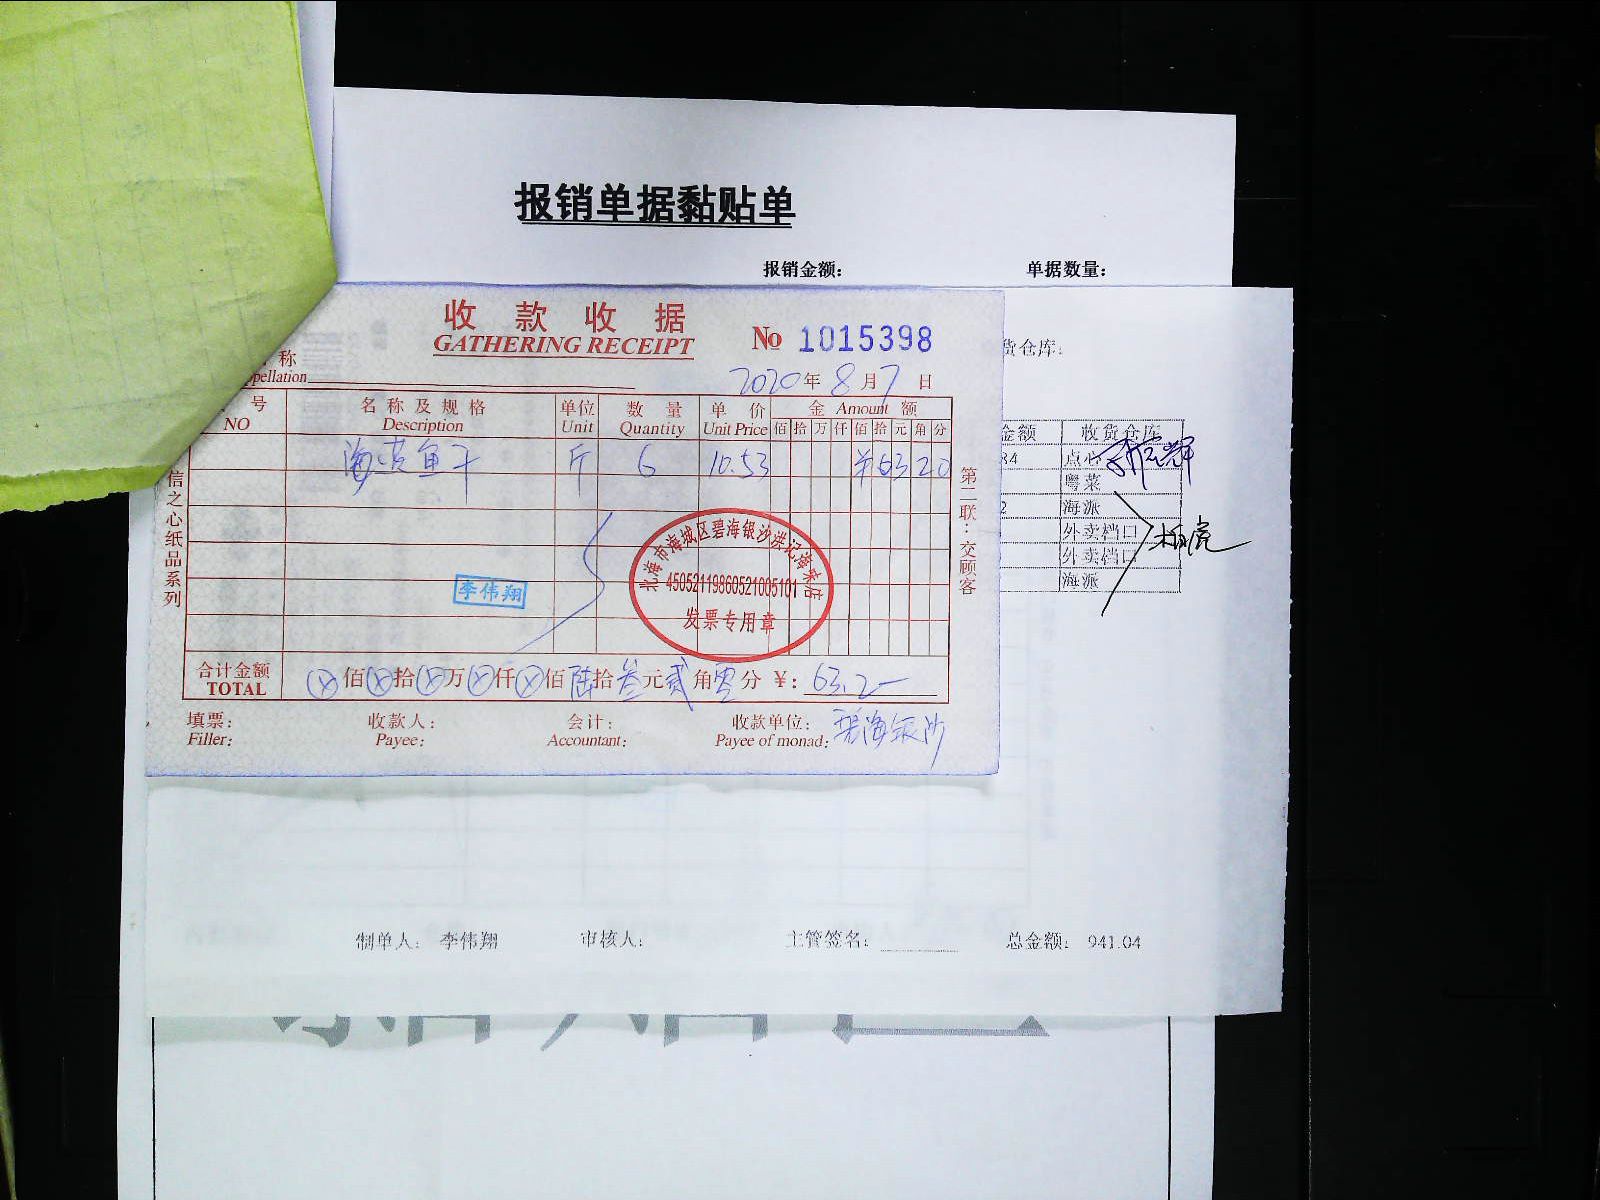 报销单据黏贴单
报销金额： 单据数量：
收款收据
GATHERING RECEIPT
№ 1015398
称
pellation
2020年8月7日
货仓库：
号 名称及规格 单位 数量 单价 金 Amount 额
NO Description Unit Quantity Unit Price 佰 拾 万 仟 佰 拾 元 角 分
鱼干 斤 6 10.53 ¥63 20
信之心纸品系列
第二联：交顾客
北海市海城区碧海银沙洪记海味店
45052119860521005101
发票专用章
李伟翔
合计金额 ⊗佰⊗拾⊗万⊗仟⊗佰陆拾叁元贰角零分 ¥：63.2-
TOTAL
填票： 收款人： 会计： 收款单位：碧海银沙
Filler: Payee: Accountant: Payee of monad:
金额 收货仓库
84 点心
粤菜
2 海派
外卖档口
外卖档口
海派
制单人：李伟翔 审核人： 主管签名： 总金额：941.04